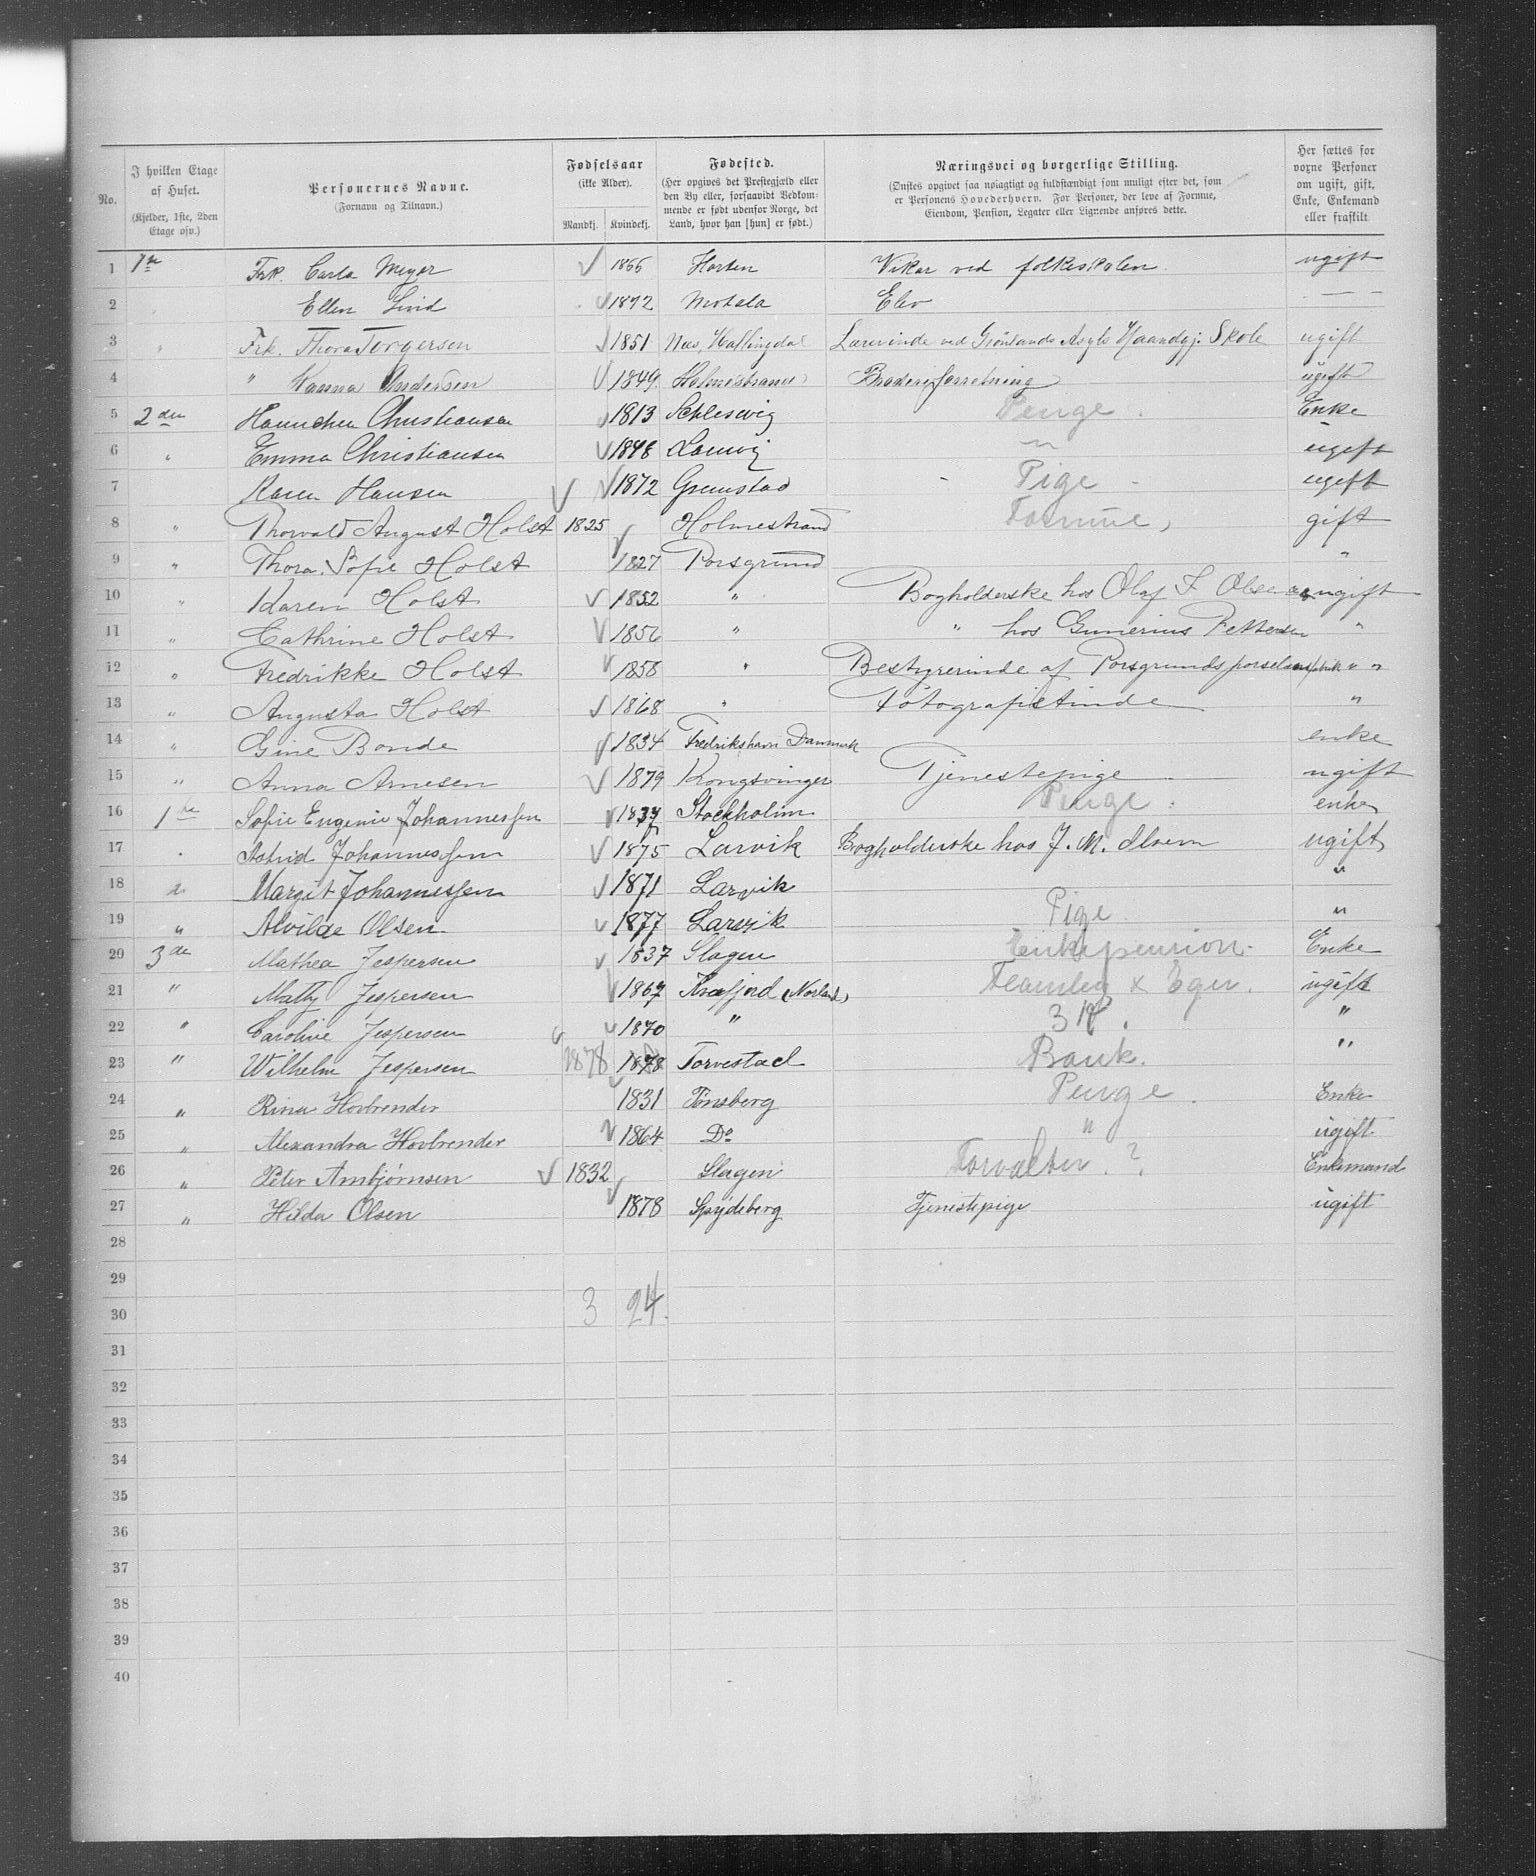 No. | I hvilken Etage af Huset. (Kjelder, 1ste, 2den Etage osv.) | Personernes Navne. (Fornavn og Tilnavn.) | Fødselsaar (ikke Alder). Mandkj. Kvindekj. | Fødested. (Her opgives det Prestegjæld eller den By eller, forsaavidt Vedkommende er født udenfor Norge, det Land, hvor han [hun] er født.) | Næringsvei og borgerlige Stilling. (Ønskes opgivet saa nøiagtigt og fuldstændigt som muligt efter det, som er Personens Hovederhverv. For Personer, der leve af Formue, Eiendom, Pension, Legater eller Lignende anføres dette. | Her sættes for voxne Personer om ugift, gift, Enke, Enkemand eller fraskilt.
1 1ste Frk. Carla Meyer 1866 Horten Vikar ved folkeskolen ugift
2 Ellen Lind 1872 Motala Elev —
3 " Frk. Thora Torgersen 1851 Næs, Hallingdal Lærerinde ved Grønlands Asyls Haandgj. Skole ugift
4 " Hanna Andersen 1849 Holmestrand Broderiforretning ugift
5 2den Hannchen Christiansen 1813 Schleswig Penge Enke
6 " Emma Christiansen 1848 Laurvig " ugift
7 Karen Hansen 1872 Grimstad Pige ugift
8 " Thorvald August Holst 1825 Holmestrand Formue, gift
9 " Thora Sofie Holst 1827 Porsgrund "
10 " Karen Holst 1852 " Bogholderske hos Olaf L Olsen ugift
11 " Cathrine Holst 1856 " " hos Gunerius Pettersen "
12 " Fredrikke Holst 1858 " Bestyrerinde af Porsgrunds porselænsfabrik " "
13 " Augusta Holst 1868 " Fotografistinde "
14 " Gine Bonde 1834 Fredrikshavn Danmark enke
15 " Anna Arnesen 1879 Kongsvinger Tjenestepige ugift
16 1ste Sofie Eugenie Johannessen 1837 Stockholm Penge enke
17 Astrid Johannessen 1875 Larvik Bogholderske hos J. M. ugift
18 " Margit Johannessen 1871 Larvik "
19 " Alvilde Olsen 1877 Larvik Pige "
20 3de Mathea Jespersen 1837 Slagen Enkepension Enke
21 " Matty Jespersen 1867 (Norland) ugift
22 " Caroline Jespersen 1870 " "
23 " Wilhelm Jespersen 1878 1878 Torvestad Bank. "
24 " Rina Hovbrender 1831 Tønsberg Penge Enke
25 " Alexandra Hovbrender 1864 Do " ugift
26 " Peter Ambjørnsen 1832 Slagen Forvalter. ? Enkemand
27 " Hilda Olsen 1878 Spydeberg Tjenestepige ugift
28
29
30 3 24.
31
32
33
34
35
36
37
38
39
40